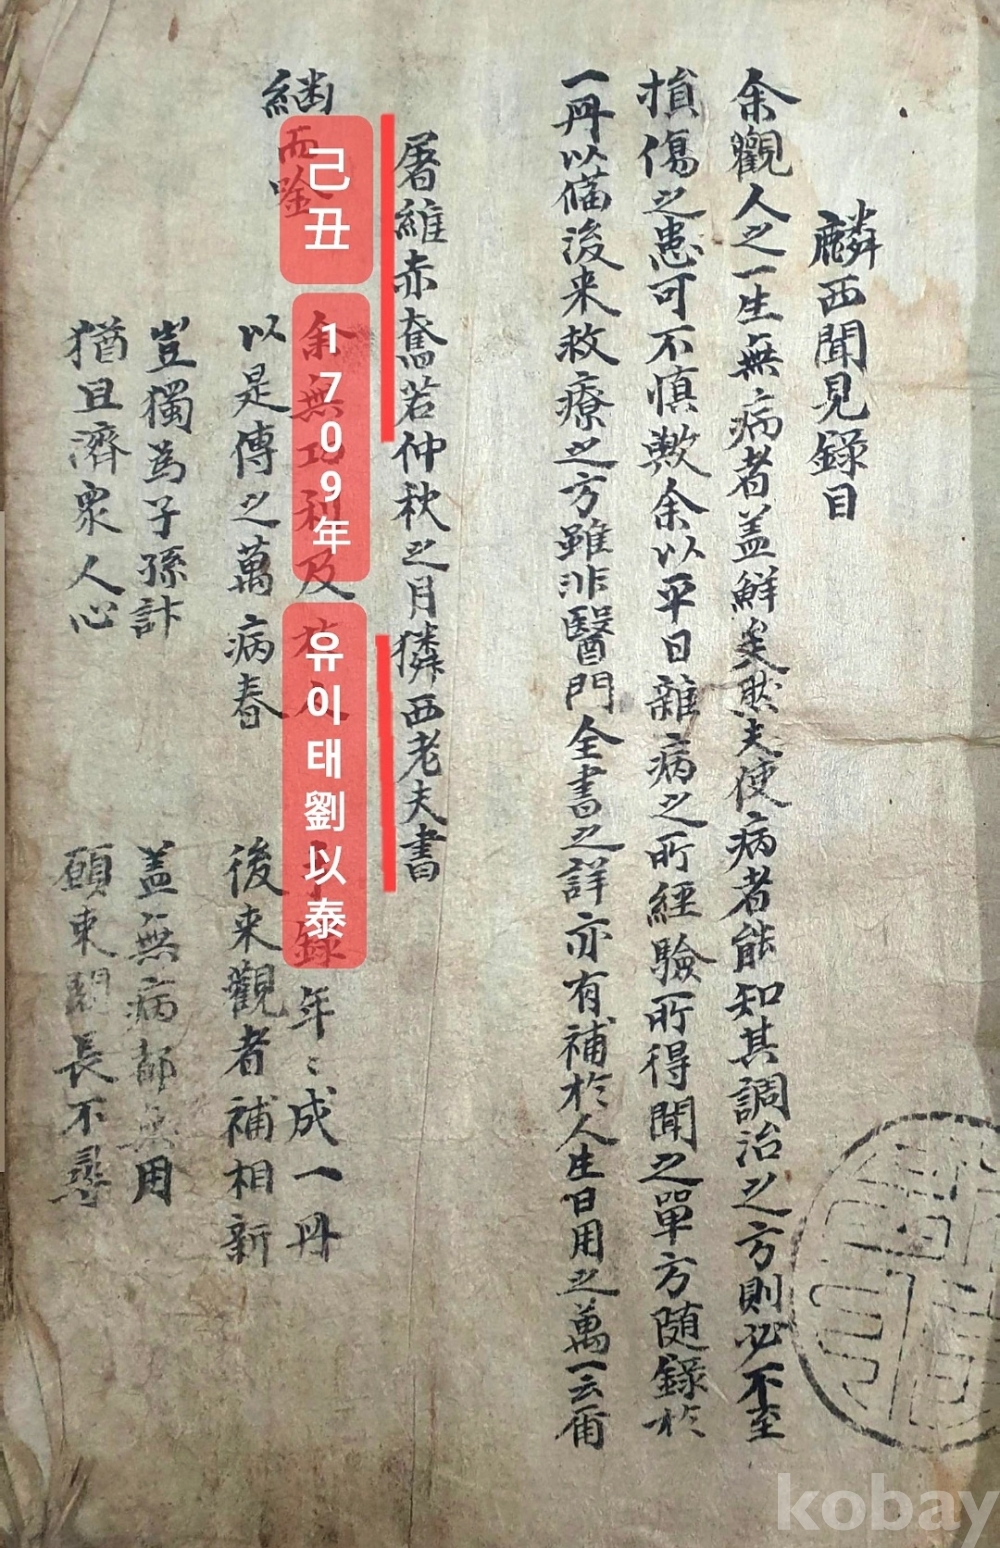 麟西聞見錄目
余觀人之一生無病者盖鮮矣然夫使病者能知其調治之方則必不至
損傷之患可不愼歟余以平日雜病之所經驗所得聞之單方随錄於
一冊以備後来救療之方雖非醫門全書之詳亦有補於人生日用之萬一云爾
屠維赤奮若仲秋之月獜西老夫書
繼而唫
余無功利及 錄年〻成一冊
以是傳之萬病春 後来觀者補相新
豈獨為子孫計 盖無病都無用
猶且濟衆人心 願東 長不尋
己丑
1709年
유이태劉以泰
kobay